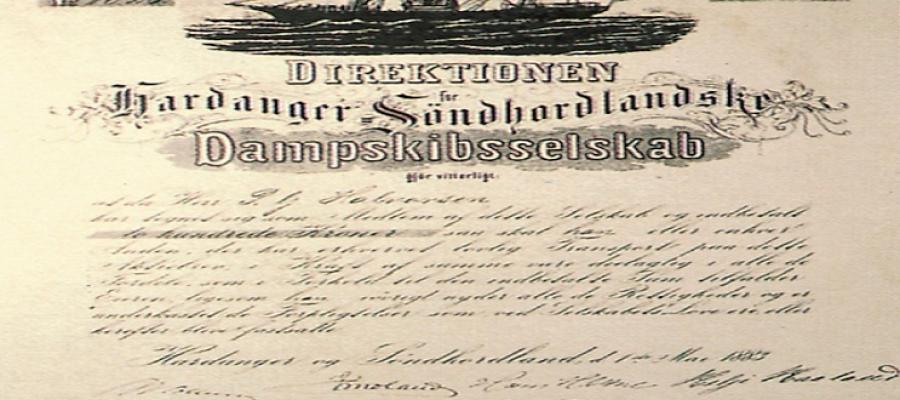 DIREKTIONEN
for
Hardanger-Söndhordlandske
Dampskibsselskab
gjör vitterligt:
at da Herr P. G. Halvorsen
har tegnet sig som Medlem af dette Selskab og indbetalt
to hundrede Kroner saa skal han eller enhver
anden, der har erhvervet lovlig Transport paa dette
Aktiebrev i Kraft af samme være deelagtig i alle de
Fordele, som i Forhold til den indbetalte Sum tilfalder
Eieren, ligesom han øvrigt nyder alle de Rettigheder og er
underkastet de Forpligtelser som ved Selskabets Love ere eller
herefter blive fastsatte
Hardanger og Söndhordland, d. 1ste Mai 1883